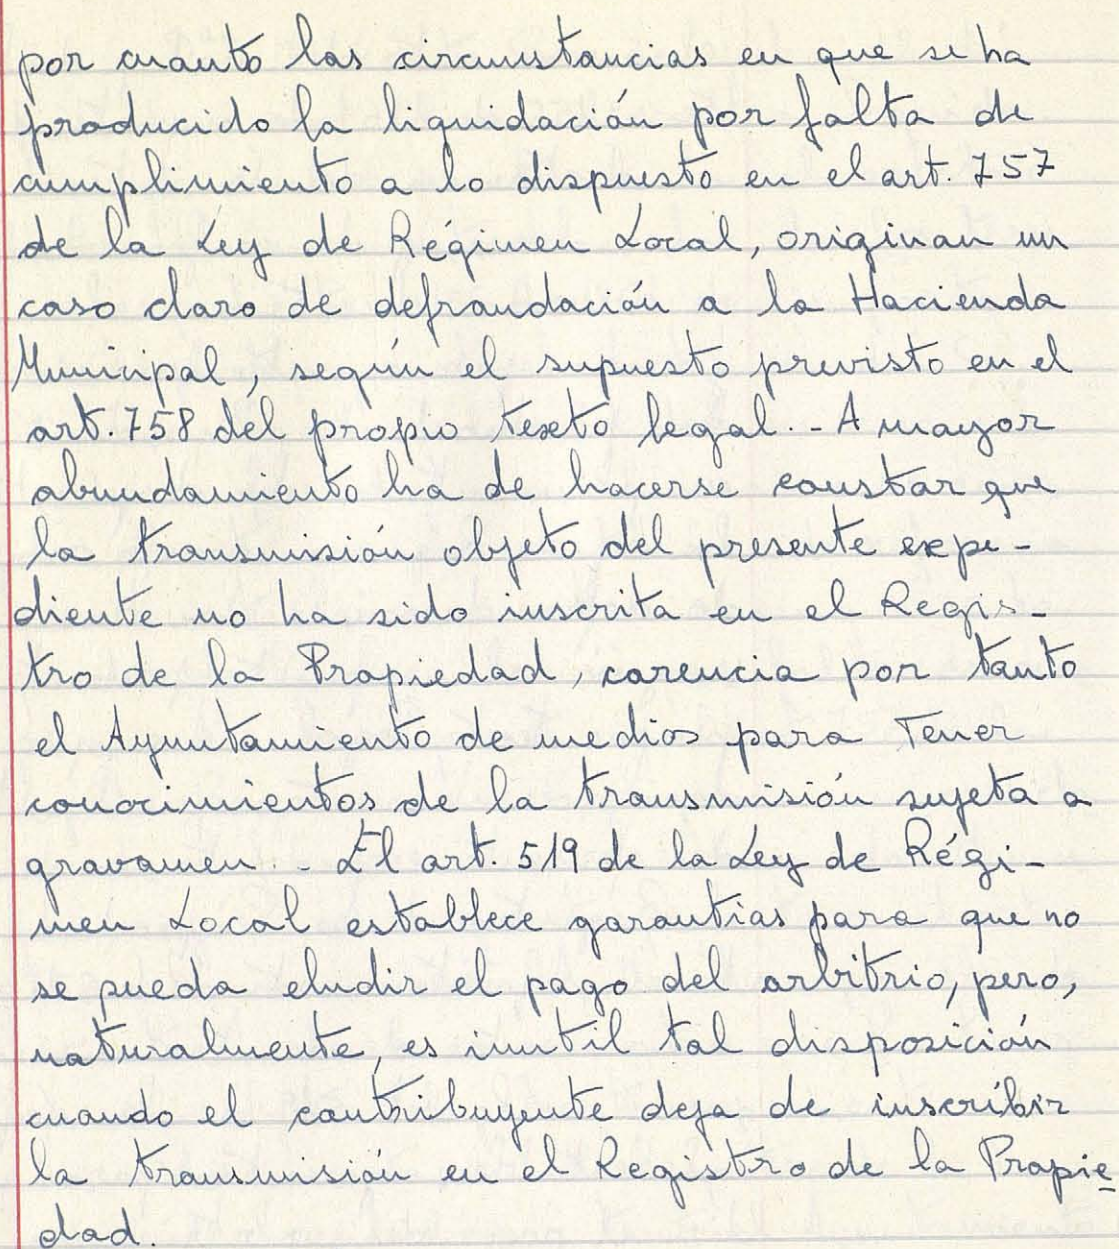 por cuanto las circunstancias en que se ha
producido la liquidación por falta de
cumplimiento a lo dispuesto en el art. 757
de la Ley de Régimen Local, originan un
caso claro de defraudación a la Hacienda
Municipal, según el supuesto previsto en el
art. 758 del propio texto legal.- A mayor
abundamiento ha de hacerse constar que
la transmisión objeto del presente expe-
diente no ha sido inscrita en el Regis-
tro de la Propiedad, carencia por tanto
el Ayuntamiento de medios para Tener
conocimientos de la transmisión sujeta a
gravamen.- El art. 519 de la Ley de Régi-
men Local establece garantías para que no
se pueda eludir el pago del arbitrio, pero,
naturalmente, es inutil tal disposición
cuando el contribuyente deja de inscribir
la transmisión en el Registro de la Propie
dad.